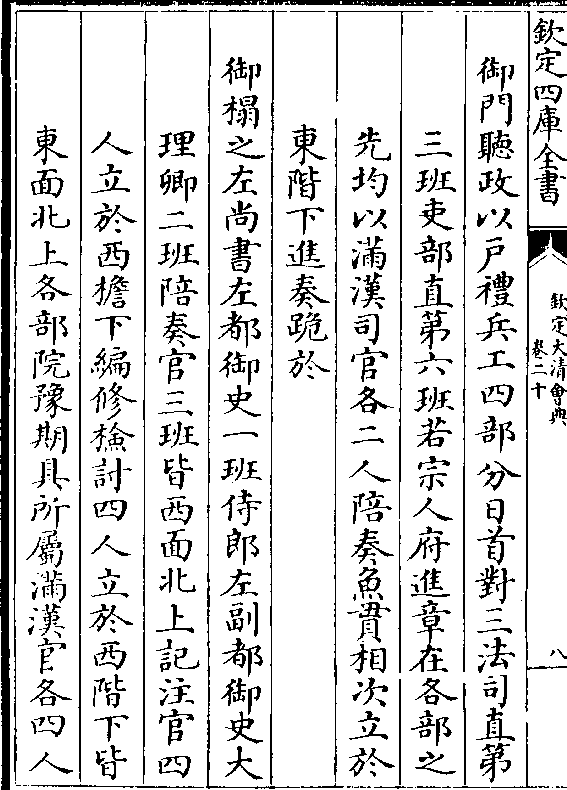 欽定四庫全書
欽定大清會典
卷二十
八
御門聽政以戸禮兵工四部分日首對三法司直第
三班吏部直第六班若宗人府進章在各部之
先均以滿漢司官各二人陪奏魚貫相次立於
東階下進奏跪於
御榻之左尚書左都御史一班侍郎左副都御史大
理卿二班陪奏官三班皆西面北上記注官四
人立於西檐下編修檢討四人立於西階下皆
東面北上各部院豫期具所屬滿漢官各四人